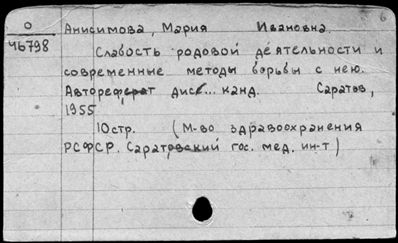 О
46798
6
Анисимова, Мария Ивановна.
Слабость родовой деятельности и
современные методы борьбы с нею.
Автореферат дисс... канд. Саратов,
1955
10стр. (М-во здравоохранения
РСФСР. Саратовский гос. мед. ин-т)